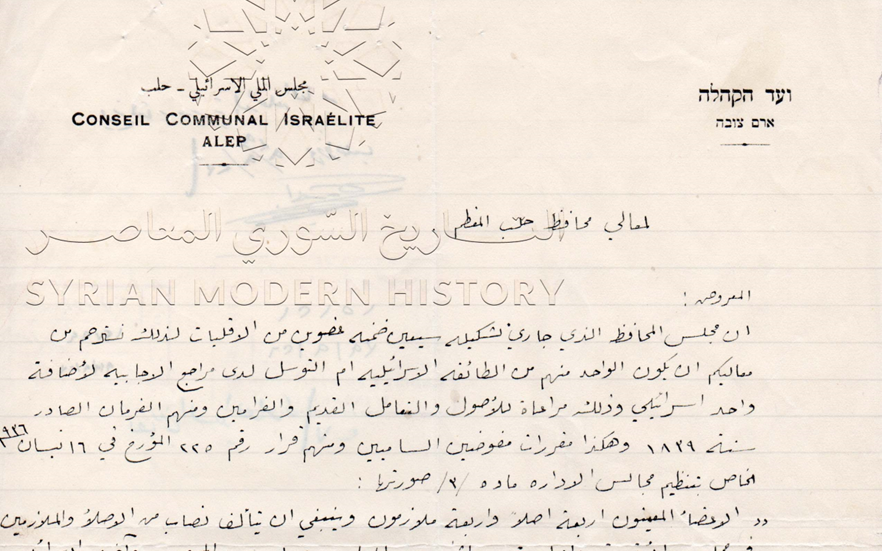 مجلس الملي الاسرائيلي - حلب
CONSEIL COMMUNAL ISRAÉLITE
ALEP
ועד הקהלה
ארם צובה
التاريخ السّوري المعاصر
SYRIAN MODERN HISTORY
لمعالي محافظ حلب المعظم
المعروض :
ان مجلس المحافظ الذي جاري تشكيله سيعين ضمنه عضوين من الاقليات لذلك نسترحم من
معاليكم ان يكون الواحد منهم من الطائفه الاسرائيليه ام التوسل لدى مراجع الاجابيه لأضافة
واحد اسرائيلي وذلك مراعاة للأصول والتعامل القديم والفرامين ومنهم الفرمان الصادر
سنة ١٨٣٩ وهكذا مقررات مفوضين الساميين ومنهم قرار رقم ٢٢٥ المؤرخ في ١٦ نيسان ١٩٢٦
الخاص بتنظيم مجالس الاداره ماده /٣/ صورتها :
" الاعضاء المعينون اربعة اصلا واربعة ملازمون وينبغي ان يتألف نصاب من الاصلاء والملازمين